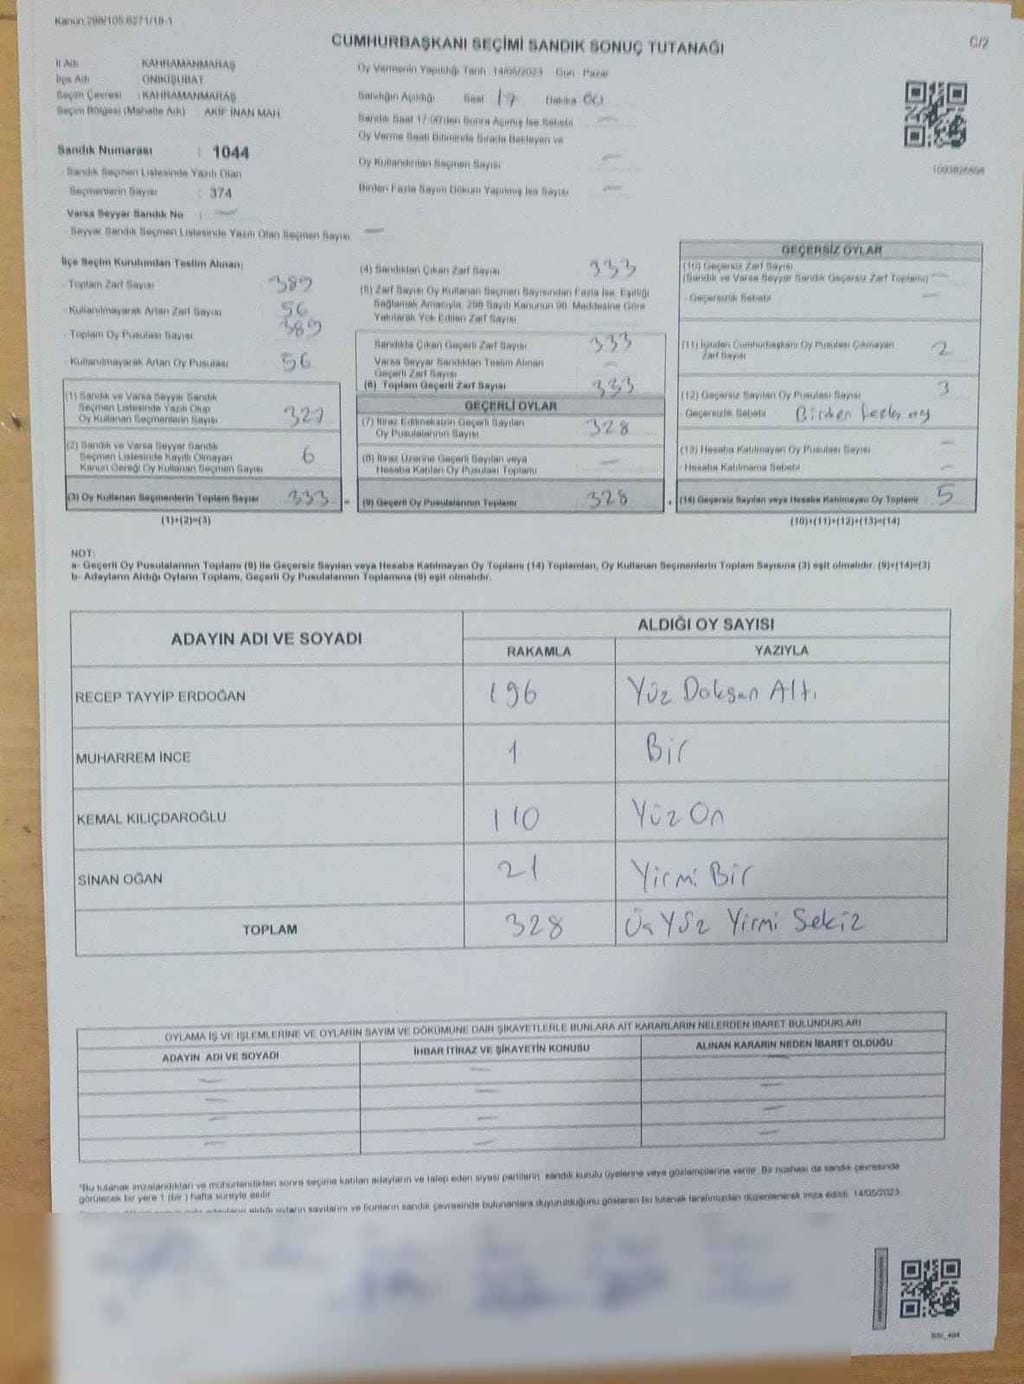 Kanun:298/105:6271/18-1
CUMHURBAŞKANI SEÇİMİ SANDIK SONUÇ TUTANAĞI
C/2
İl Adı KAHRAMANMARAŞ
İlçe Adı ONİKİŞUBAT
Seçim Çevresi : KAHRAMANMARAŞ
Seçim Bölgesi (Mahalle Adı) : AKİF İNAN MAH
Sandık Numarası : 1044
- Sandık Seçmen Listesinde Yazılı Olan
Seçmenlerin Sayısı : 374
Varsa Seyyar Sandık No : —
- Seyyar Sandık Seçmen Listesinde Yazılı Olan Seçmen Sayısı —
Oy Vermenin Yapıldığı Tarih :14/05/2023 Gün : Pazar
Sandığın Açıldığı Saat 17 Dakika 00
Sandık Saat 17:00'den Sonra Açılmış İse Sebebi —
Oy Verme Saati Bitiminde Sırada Bekleyen ve
Oy Kullandırılan Seçmen Sayısı —
Birden Fazla Sayım Döküm Yapılmış İse Sayısı —
İlçe Seçim Kurulundan Teslim Alınan;
- Toplam Zarf Sayısı 389
- Kullanılmayarak Artan Zarf Sayısı 56
- Toplam Oy Pusulası Sayısı 389
- Kullanılmayarak Artan Oy Pusulası 56
(1) Sandık ve Varsa Seyyar Sandık
Seçmen Listesinde Yazılı Olup
Oy Kullanan Seçmenlerin Sayısı 327
(2) Sandık ve Varsa Seyyar Sandık
Seçmen Listesinde Kayıtlı Olmayan
Kanun Gereği Oy Kullanan Seçmen Sayısı 6
(3) Oy Kullanan Seçmenlerin Toplam Sayısı 333 =
(1)+(2)=(3)
(4) Sandıktan Çıkan Zarf Sayısı 333
(5) Zarf Sayısı Oy Kullanan Seçmen Sayısından Fazla İse, Eşitliği
Sağlamak Amacıyla, 298 Sayılı Kanunun 98. Maddesine Göre
Yakılarak Yok Edilen Zarf Sayısı
Sandıkta Çıkan Geçerli Zarf Sayısı 333
Varsa Seyyar Sandıktan Teslim Alınan
Geçerli Zarf Sayısı —
(6) Toplam Geçerli Zarf Sayısı 333
GEÇERLİ OYLAR
(7) İtiraz Edilmeksizin Geçerli Sayılan
Oy Pusulalarının Sayısı 328
(8) İtiraz Üzerine Geçerli Sayılan veya
Hesaba Katılan Oy Pusulası Toplamı —
(9) Geçerli Oy Pusulalarının Toplamı 328 +
GEÇERSİZ OYLAR
(10) Geçersiz Zarf Sayısı
(Sandık ve Varsa Seyyar Sandık Geçersiz Zarf Toplamı) —
- Geçersizlik Sebebi —
(11) İçinden Cumhurbaşkanı Oy Pusulası Çıkmayan
Zarf Sayısı 2
(12) Geçersiz Sayılan Oy Pusulası Sayısı 3
- Geçersizlik Sebebi Birden fazla oy
(13) Hesaba Katılmayan Oy Pusulası Sayısı —
- Hesaba Katılmama Sebebi —
(14) Geçersiz Sayılan veya Hesaba Katılmayan Oy Toplamı 5
(10)+(11)+(12)+(13)=(14)
NOT:
a- Geçerli Oy Pusulalarının Toplamı (9) ile Geçersiz Sayılan veya Hesaba Katılmayan Oy Toplamı (14) Toplamları, Oy Kullanan Seçmenlerin Toplam Sayısına (3) eşit olmalıdır. (9)+(14)=(3)
b- Adayların Aldığı Oyların Toplamı, Geçerli Oy Pusulalarının Toplamına (9) eşit olmalıdır.
ADAYIN ADI VE SOYADI
ALDIĞI OY SAYISI
RAKAMLA YAZIYLA
RECEP TAYYİP ERDOĞAN 196 Yüz Doksan Altı
MUHARREM İNCE 1 Bir
KEMAL KILIÇDAROĞLU 110 Yüz On
SİNAN OĞAN 21 Yirmi Bir
TOPLAM 328 Üç Yüz Yirmi Sekiz
OYLAMA İŞ VE İŞLEMLERİNE VE OYLARIN SAYIM VE DÖKÜMÜNE DAİR ŞİKAYETLERLE BUNLARA AİT KARARLARIN NELERDEN İBARET BULUNDUKLARI
ADAYIN ADI VE SOYADI İHBAR İTİRAZ VE ŞİKAYETİN KONUSU ALINAN KARARIN NEDEN İBARET OLDUĞU
— — —
— — —
— — —
— — —
*Bu tutanak imzalandıktan ve mühürlendikten sonra seçime katılan adayların ve talep eden siyasi partilerin sandık kurulu üyelerine veya gözlemcilerine verilir. Bir nüshası da sandık çevresinde
görülecek bir yere 1 (bir ) hafta süreyle asılır.
adayların aldığı oyların sayılarını ve bunların sandık çevresinde bulunanlara duyurulduğunu gösteren bu tutanak tarafımızdan düzenlenerek imza edildi. 14/05/2023